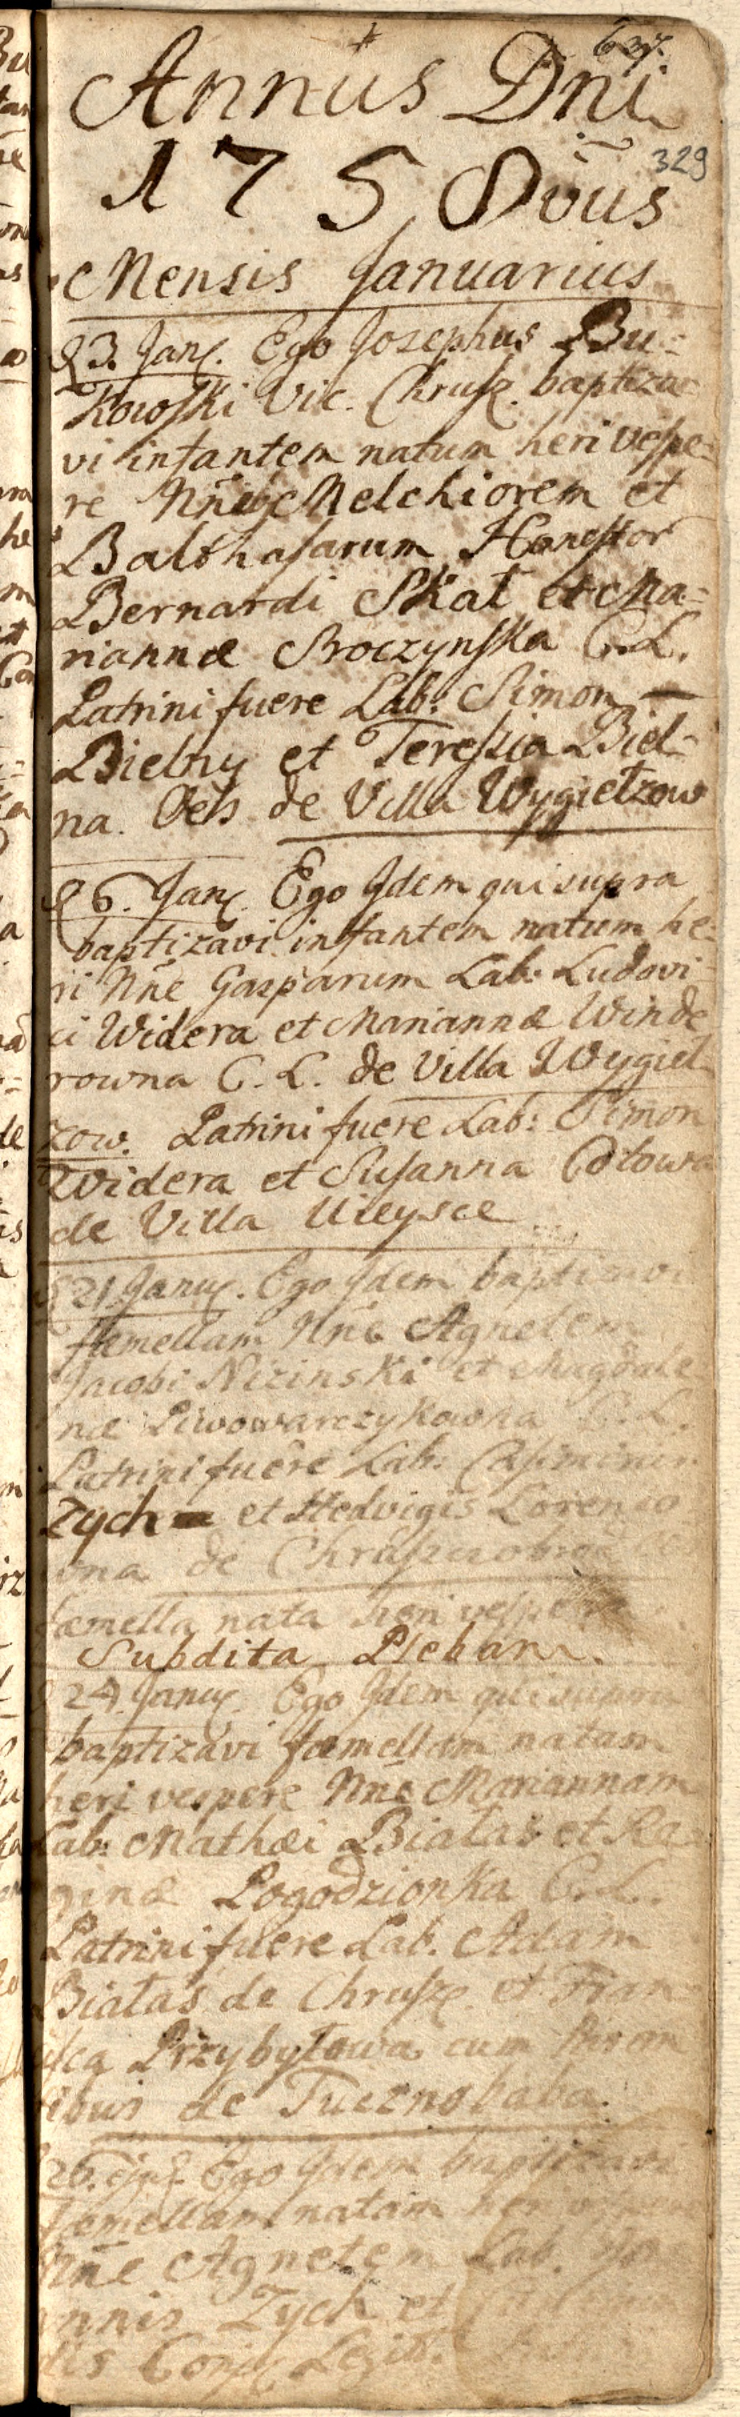 637.
Annus Dni
329
175 8vus
Mensis Januarius
d 3. Jan. Ego Josephus Bu=
kowski Vic. Chrusz. baptiza=
vi infantem natum heri vespe=
re Nneb Melchiorem et
Balthasarum Honestor
Bernardi Skat et Ma=
riannæ Sroczynska C. L.
Patrini fuere Lab: Simon
Bielny et Tereszia Biel=
na. Oēs de Villa Wygiełzow
d 6. Jan. Ego Idem qui supra
baptizavi infantem natum he=
ri Nñe Gasparum Lab: Ludovi=
ci Widera et Mariannæ Winde
rowna C. L. de Villa Wygieł
zow. Patrini fuere Lab: Simon
Widera et Susanna Cołowa
de Villa Uieysce
d 21 Janu. Ego Idem baptizavi
fæmellam Nñe Agnetem
Jacobi Nizinski et Magdale
næ Piwowarczykowna C. L.
Patrini fuere Lab: Casimirus
Zych et Hedvigis Lorenco
wna de Chruszczobrod
fæmella nata heri vespere
Subdita Plebani.
d 24. Janu. Ego Idem qui supra
baptizavi fæmellam natam
heri vespere Nñe Mariannam
Lab: Mathæi Białas et Re
ginæ Pogodzionka C. L.
Patrini fuere Lab. Adam
Białas de Chrusz. et Fran
cisca Przybyłowa cum Paron
tibus de Tucznobaba.
26. ejus. Ego Idem baptizavi
fæmellam natam heri vespere
Nñe Agnetem Lab. Joa
nnis Zych et
dis Conj. Legit.